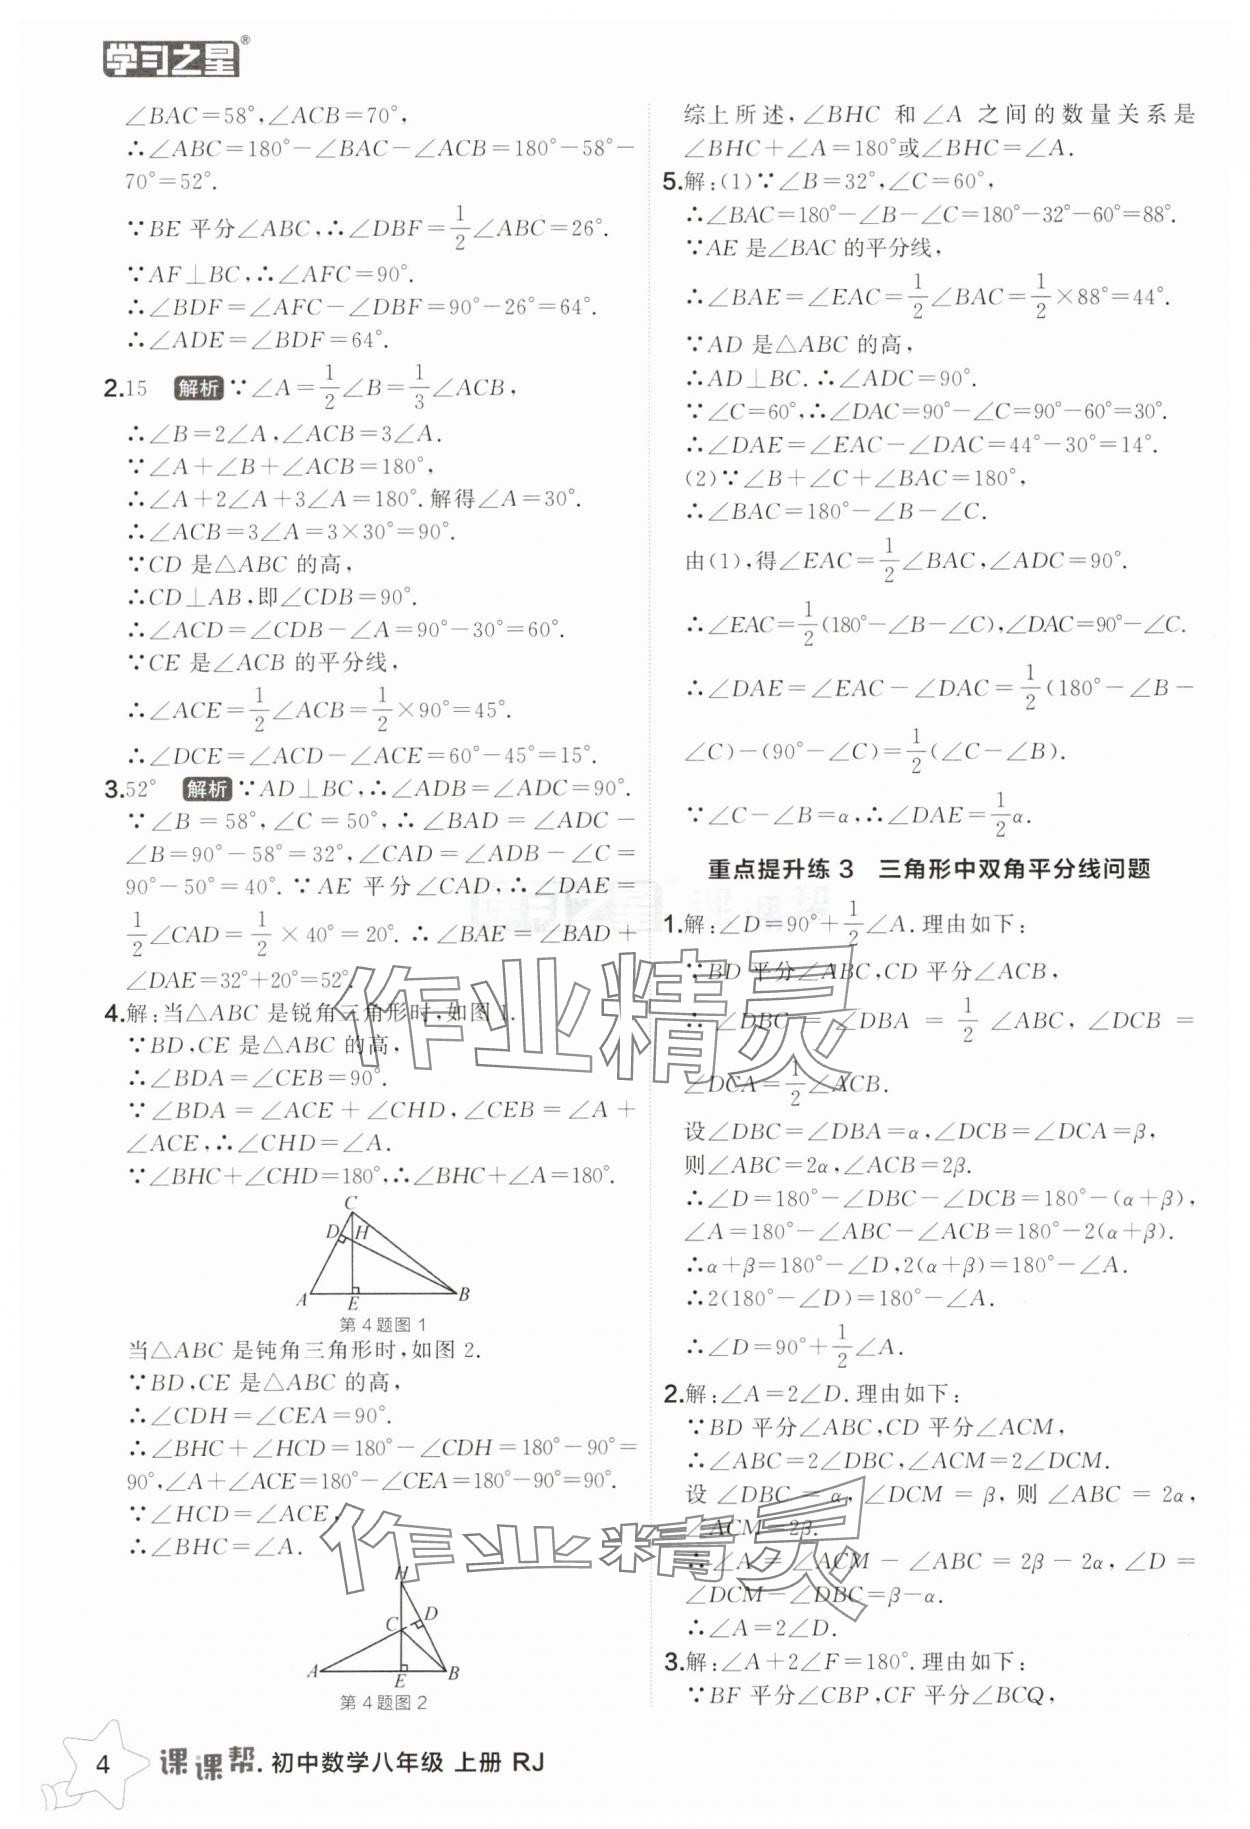 学习之星®
∠BAC=58°,∠ACB=70°,
∴∠ABC=180°-∠BAC-∠ACB=180°-58°-
70°=52°.
∵BE 平分∠ABC,∴∠DBF=1/2∠ABC=26°.
∵AF⊥BC,∴∠AFC=90°.
∴∠BDF=∠AFC-∠DBF=90°-26°=64°.
∴∠ADE=∠BDF=64°.
2.15 解析 ∵∠A=1/2∠B=1/3∠ACB,
∴∠B=2∠A,∠ACB=3∠A.
∵∠A+∠B+∠ACB=180°,
∴∠A+2∠A+3∠A=180°.解得∠A=30°.
∴∠ACB=3∠A=3×30°=90°.
∵CD 是△ABC 的高,
∴CD⊥AB,即∠CDB=90°.
∴∠ACD=∠CDB-∠A=90°-30°=60°.
∵CE 是∠ACB 的平分线,
∴∠ACE=1/2∠ACB=1/2×90°=45°.
∴∠DCE=∠ACD-∠ACE=60°-45°=15°.
3.52° 解析 ∵AD⊥BC,∴∠ADB=∠ADC=90°.
∵∠B=58°,∠C=50°,∴∠BAD=∠ADC-
∠B=90°-58°=32°,∠CAD=∠ADB-∠C=
90°-50°=40°.∵AE 平分∠CAD,∴∠DAE=
1/2∠CAD=1/2×40°=20°.∴∠BAE=∠BAD+
∠DAE=32°+20°=52°.
4.解:当△ABC 是锐角三角形时,如图 1.
∵BD,CE 是△ABC 的高,
∴∠BDA=∠CEB=90°.
∵∠BDA=∠ACE+∠CHD,∠CEB=∠A+
∠ACE,∴∠CHD=∠A.
∵∠BHC+∠CHD=180°,∴∠BHC+∠A=180°.
C
D H
A E B
第 4 题图 1
当△ABC 是钝角三角形时,如图 2.
∵BD,CE 是△ABC 的高,
∴∠CDH=∠CEA=90°.
∴∠BHC+∠HCD=180°-∠CDH=180°-90°=
90°,∠A+∠ACE=180°-∠CEA=180°-90°=90°.
∵∠HCD=∠ACE,
∴∠BHC=∠A.
H
C D
A E B
第 4 题图 2
综上所述,∠BHC 和∠A 之间的数量关系是
∠BHC+∠A=180°或∠BHC=∠A.
5.解:(1)∵∠B=32°,∠C=60°,
∴∠BAC=180°-∠B-∠C=180°-32°-60°=88°.
∵AE 是∠BAC 的平分线,
∴∠BAE=∠EAC=1/2∠BAC=1/2×88°=44°.
∵AD 是△ABC 的高,
∴AD⊥BC.∴∠ADC=90°.
∵∠C=60°,∴∠DAC=90°-∠C=90°-60°=30°.
∴∠DAE=∠EAC-∠DAC=44°-30°=14°.
(2)∵∠B+∠C+∠BAC=180°,
∴∠BAC=180°-∠B-∠C.
由(1),得∠EAC=1/2∠BAC,∠ADC=90°.
∴∠EAC=1/2(180°-∠B-∠C),∠DAC=90°-∠C.
∴∠DAE=∠EAC-∠DAC=1/2(180°-∠B-
∠C)-(90°-∠C)=1/2(∠C-∠B).
∵∠C-∠B=α,∴∠DAE=1/2α.
重点提升练 3 三角形中双角平分线问题
1.解:∠D=90°+1/2∠A.理由如下:
∵BD 平分∠ABC,CD 平分∠ACB,
∴∠DBC=∠DBA=1/2∠ABC,∠DCB=
∠DCA=1/2∠ACB.
设∠DBC=∠DBA=α,∠DCB=∠DCA=β,
则∠ABC=2α,∠ACB=2β.
∴∠D=180°-∠DBC-∠DCB=180°-(α+β),
∠A=180°-∠ABC-∠ACB=180°-2(α+β).
∴α+β=180°-∠D,2(α+β)=180°-∠A.
∴2(180°-∠D)=180°-∠A.
∴∠D=90°+1/2∠A.
2.解:∠A=2∠D.理由如下:
∵BD 平分∠ABC,CD 平分∠ACM,
∴∠ABC=2∠DBC,∠ACM=2∠DCM.
设∠DBC=α,∠DCM=β,则∠ABC=2α,
∠ACM=2β.
∴∠A=∠ACM-∠ABC=2β-2α,∠D=
∠DCM-∠DBC=β-α.
∴∠A=2∠D.
3.解:∠A+2∠F=180°.理由如下:
∵BF 平分∠CBP,CF 平分∠BCQ,
作业精灵
作业精灵
4 课课帮.初中数学八年级 上册 RJ